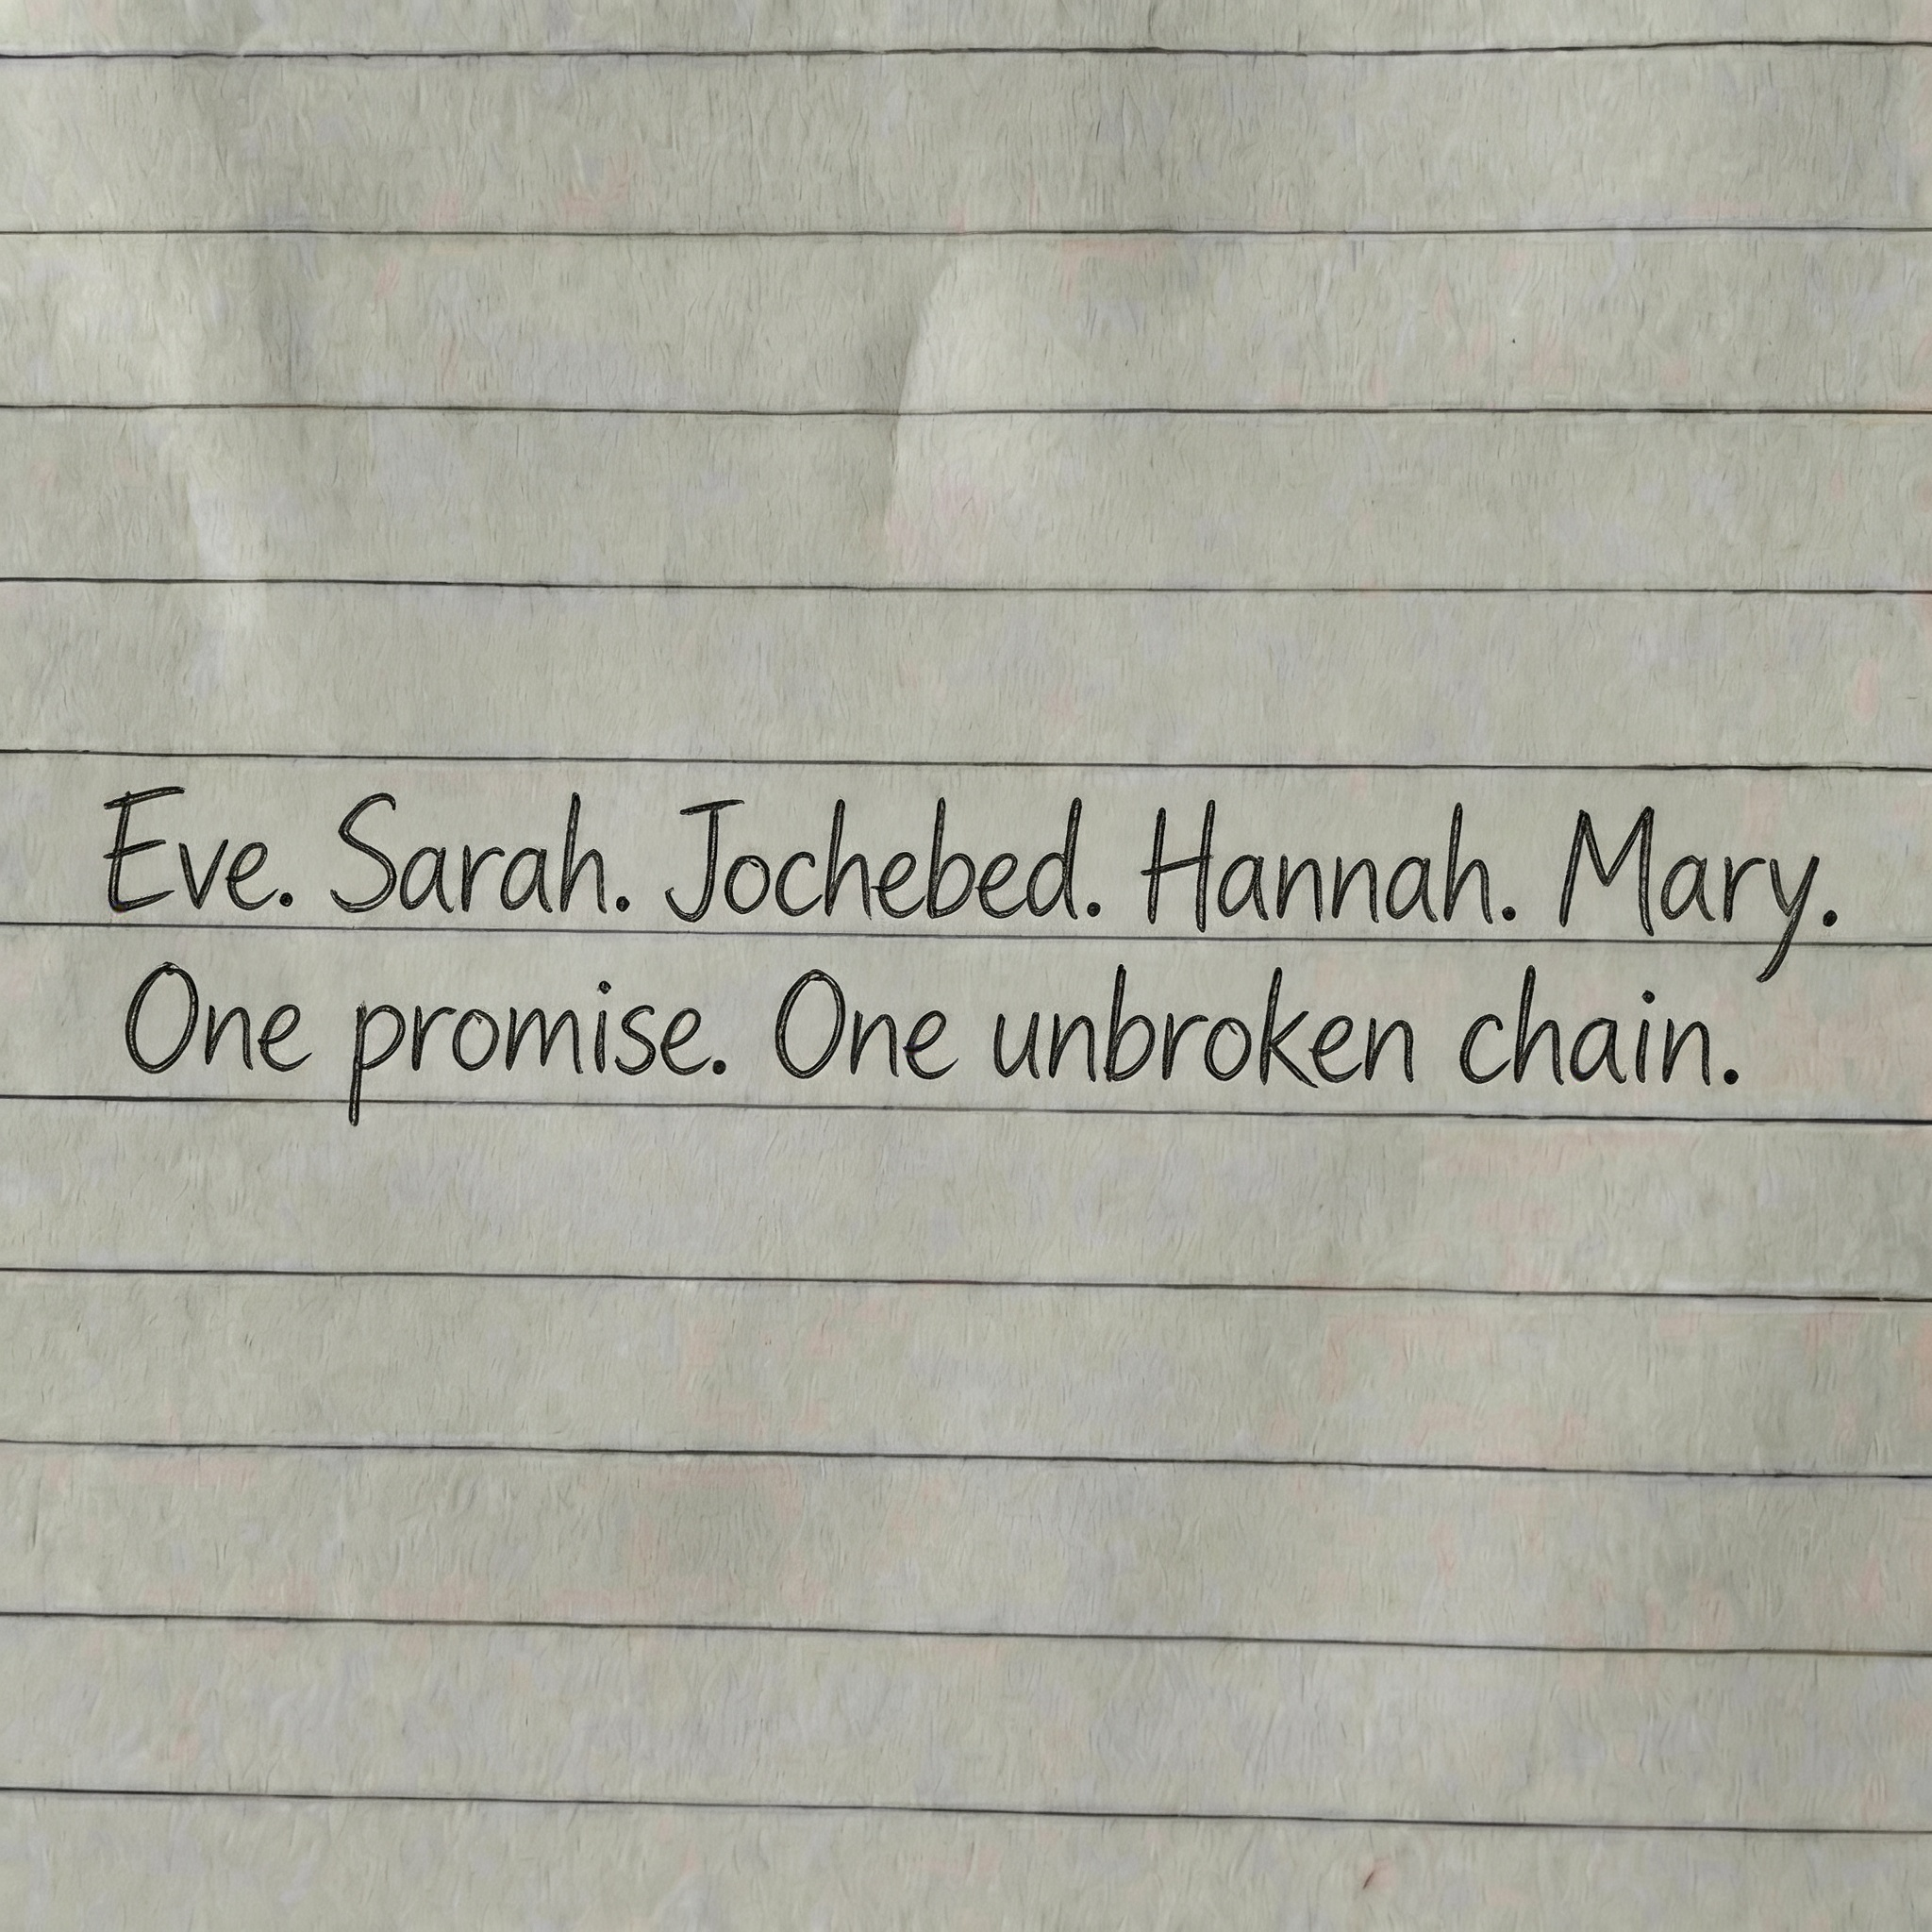 Eve. Sarah. Jochebed. Hannah. Mary.
One promise. One unbroken chain.